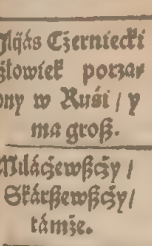 Jlijás Cżerniecki
żłowiek porzą⸗
ony w Ruśi / y
ma groß.
Miláczewßczy /
Skárßewßczy /
támże.